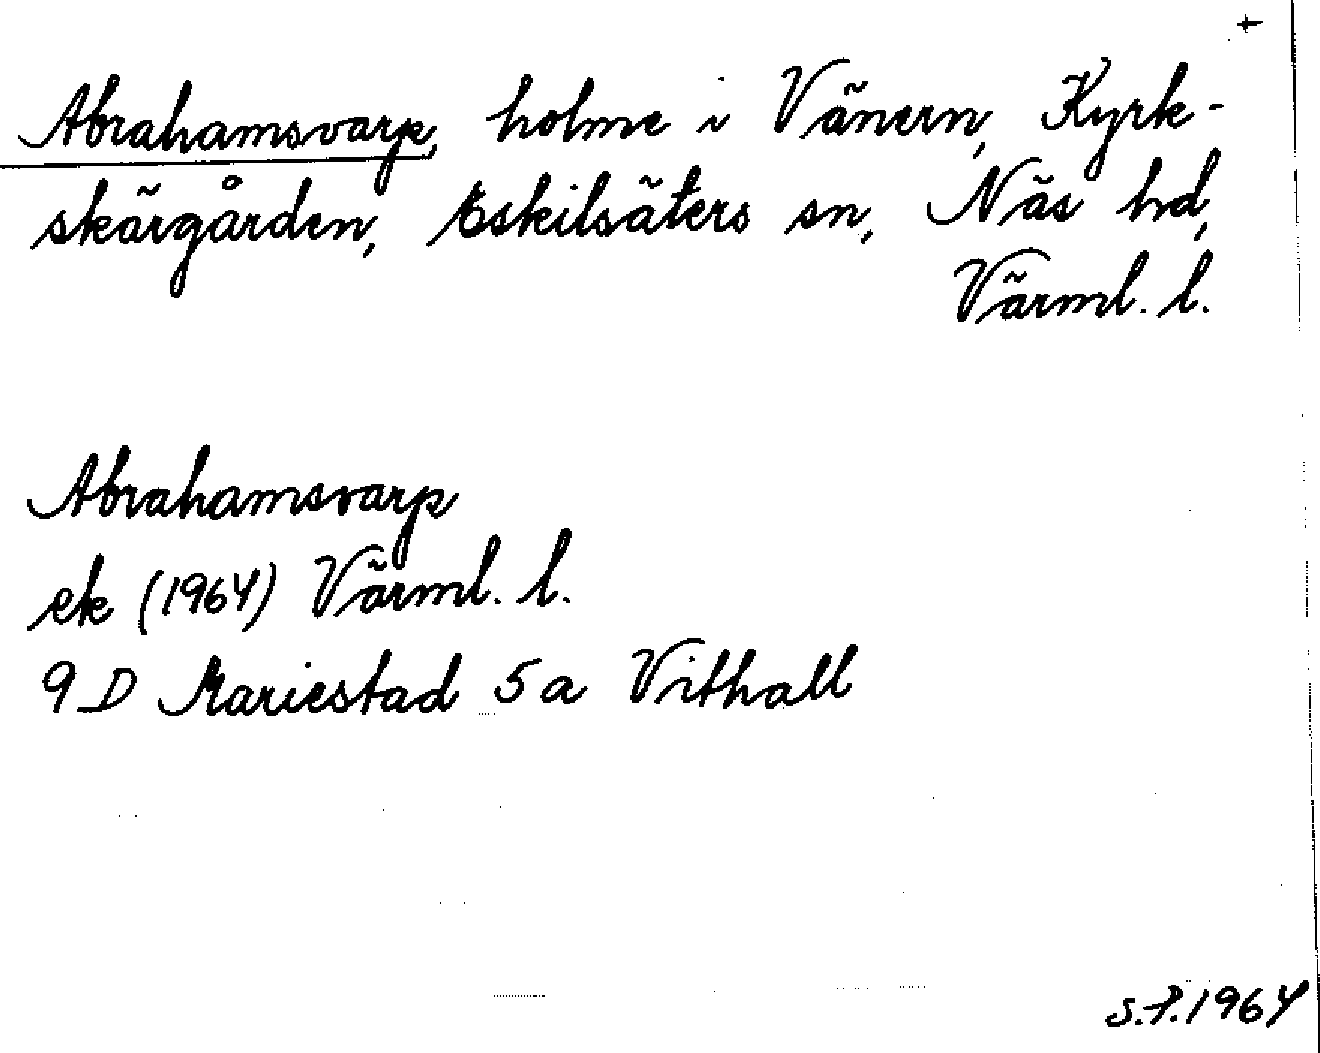 +
Abrahamsvarp, holme i Vänern, Kyrk-
skärgården, Eskilsäters sn, Näs hd,
Värml. l.
Abrahamsvarp
ek (1964) Värml. l.
9D Mariestad 5a Vithall
S.P. 1964